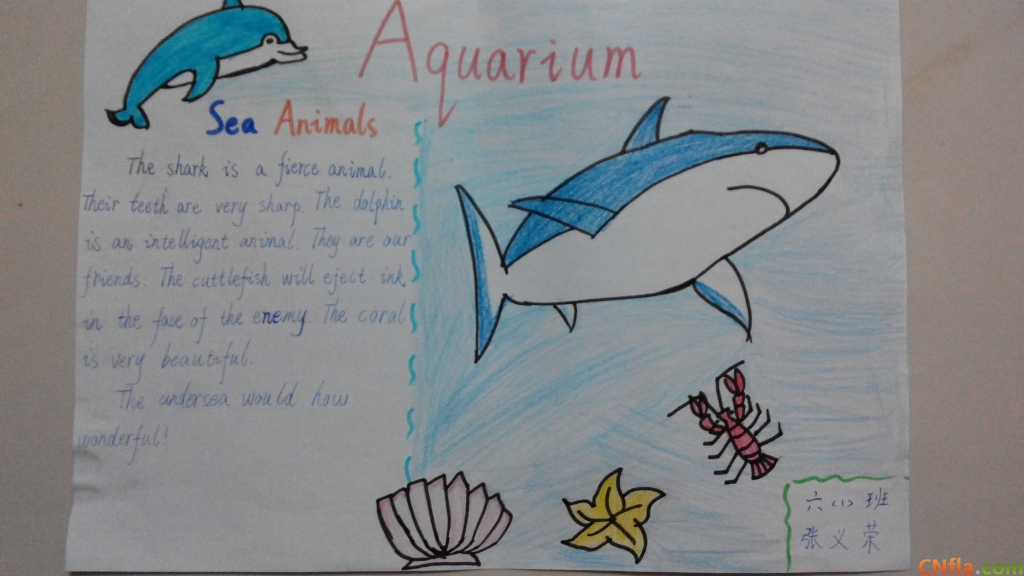 Aquarium
Sea Animals
The shark is a fierce animal.
Their teeth are very sharp. The dolphin
is an intelligent animal. They are our
friends. The cuttlefish will eject ink
in the face of the enemy. The coral
is very beautiful.
The undersea would how
wonderful!
六(1)班
张义荣
CNfla.com